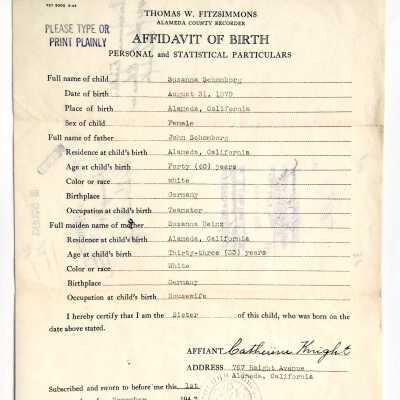 THOMAS W. FITZSIMMONS
ALAMEDA COUNTY RECORDER
PLEASE TYPE OR
PRINT PLAINLY
AFFIDAVIT OF BIRTH
PERSONAL and STATISTICAL PARTICULARS
Full name of child Suzanna Schomborg
Date of birth August 31, 1879
Place of birth Alameda, California
Sex of child Female
Full name of father John Schomborg
Residence at child's birth Alameda, California
Age at child's birth Forty (40) years
Color or race white
Birthplace Germany
Occupation at child's birth Teamster
Full maiden name of mother Suzanna Heinz
Residence at child's birth Alameda, California
Age at child's birth Thirty-three (33) years
Color or race White
Birthplace Germany
Occupation at child's birth Housewife
I hereby certify that I am the Sister of this child, who was born on the
date above stated.
AFFIANT Catherine Knight
ADDRESS 767 Haight Avenue
Alameda, California
Subscribed and sworn to before me this 1st